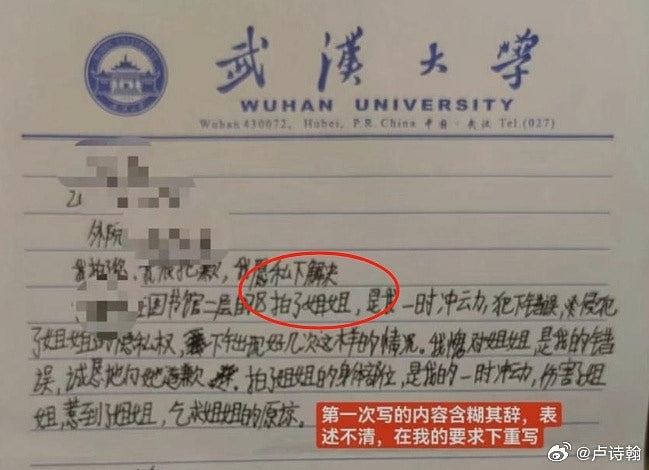 武漢大學
WUHAN UNIVERSITY
Wuhan 430072, Hubei, P.R.China 中国·武汉 Tel.(027)
外院
歉，我愿私下解决
在图书馆二层自 拍了姐姐，是我一时冲动，犯下错误，侵犯
了姐姐的隐私权，出现好几次这样的情况。我愧对姐姐，是我的错
误，诚恳地向她道歉。拍了姐姐的身体部位，是我的一时冲动，伤害了姐
姐，惹到了姐姐，乞求姐姐的原谅。
第一次写的内容含糊其辞，表
述不清，在我的要求下重写
@卢诗翰